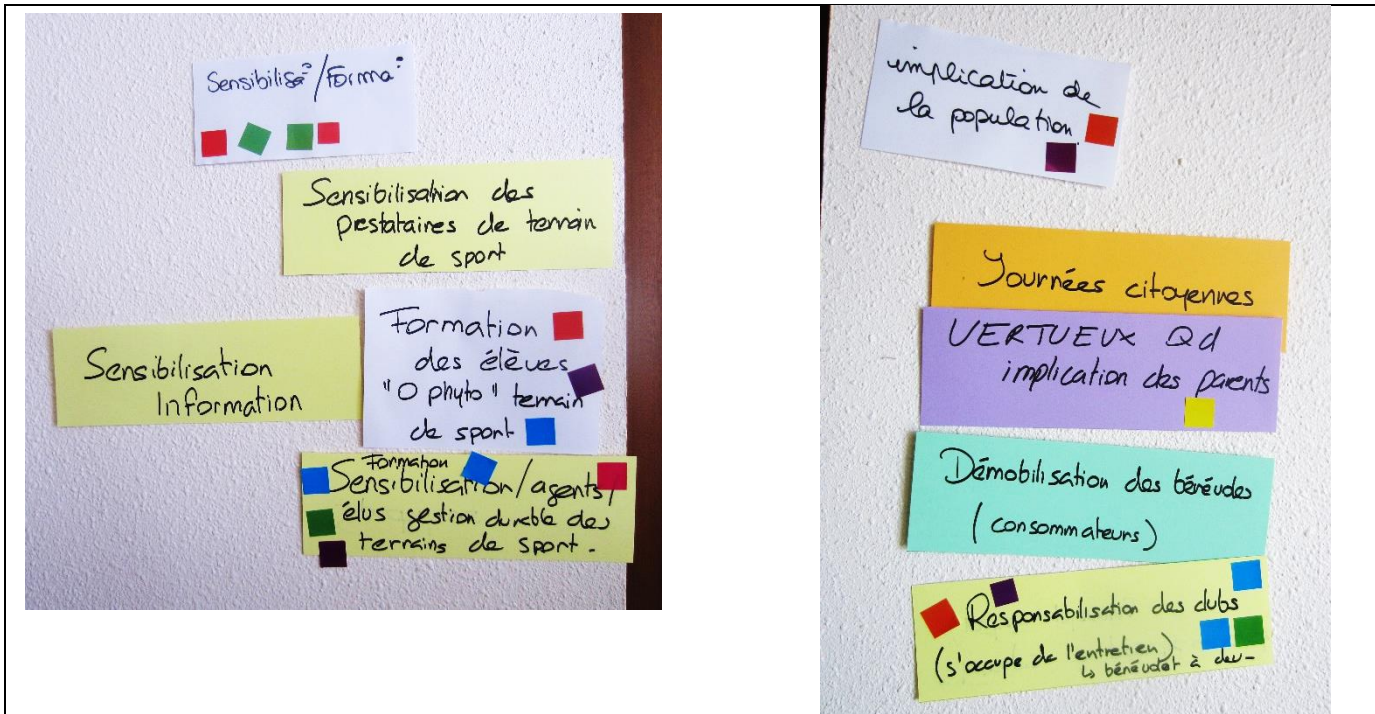 Sensibilis° / Forma°
Sensibilisation des
prestataires de terrain
de sport
Sensibilisation
Information
Formation
des élèves
"O phyto" terrain
de sport
Formation
Sensibilisation/agents/
élus gestion durable des
terrains de sport.
implication de
la population
Journées citoyennes
VERTUEUX Qd
implication des parents
Démobilisation des bénévoles
(consommateurs)
Responsabilisation des clubs
(s'occupe de l'entretien)
↳ bénévolat à